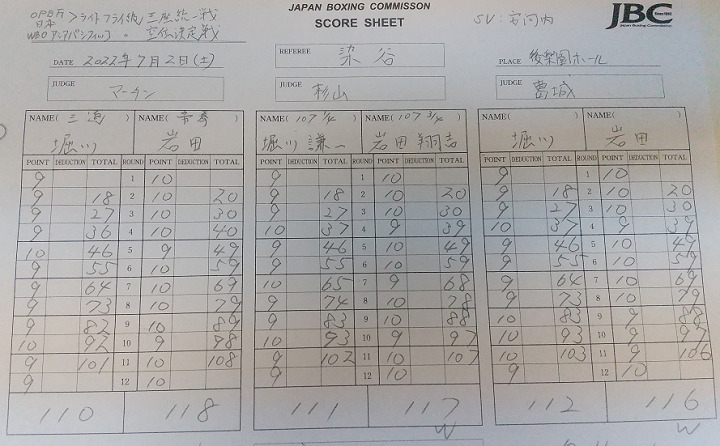 JAPAN BOXING COMMISSON
SCORE SHEET
OPBF
日本 > ライトフライ級 三冠統一戦
WBOアジアパシフィック 王位決定戦
SV:安河内
JBC
Since 1952
Japan Boxing Commission
DATE 2022年7月2日(土)
REFEREE 染谷
PLACE 後楽園ホール
JUDGE マーチン
JUDGE 杉山
JUDGE 葛城
NAME(三迫) NAME(帝拳) NAME(107 1/4) NAME(107 3/4) NAME( ) NAME( )
堀川 岩田 堀川謙一 岩田翔吉 堀川 岩田
POINT DEDUCTION TOTAL ROUND POINT DEDUCTION TOTAL POINT DEDUCTION TOTAL ROUND POINT DEDUCTION TOTAL POINT DEDUCTION TOTAL ROUND POINT DEDUCTION TOTAL
9 1 10 9 1 10 9 1 10
9 18 2 10 20 9 18 2 10 20 9 18 2 10 20
9 27 3 10 30 9 27 3 10 30 9 27 3 10 30
9 36 4 10 40 10 37 4 9 39 10 37 4 9 39
10 46 5 9 49 9 46 5 10 49 9 46 5 10 49
9 55 6 10 59 9 55 6 10 59 9 55 6 10 59
9 64 7 10 69 10 65 7 9 68 9 64 7 10 69
9 73 8 10 79 9 74 8 10 78 9 73 8 10 79
9 82 9 10 89 9 83 9 10 88 10 83 9 9 88
10 92 10 9 98 10 93 10 9 97 10 93 10 9 97
9 101 11 10 108 9 102 11 10 107 10 103 11 9 106
9 12 10 9 12 10 9 12 10
110 118 111 117 112 116
W W